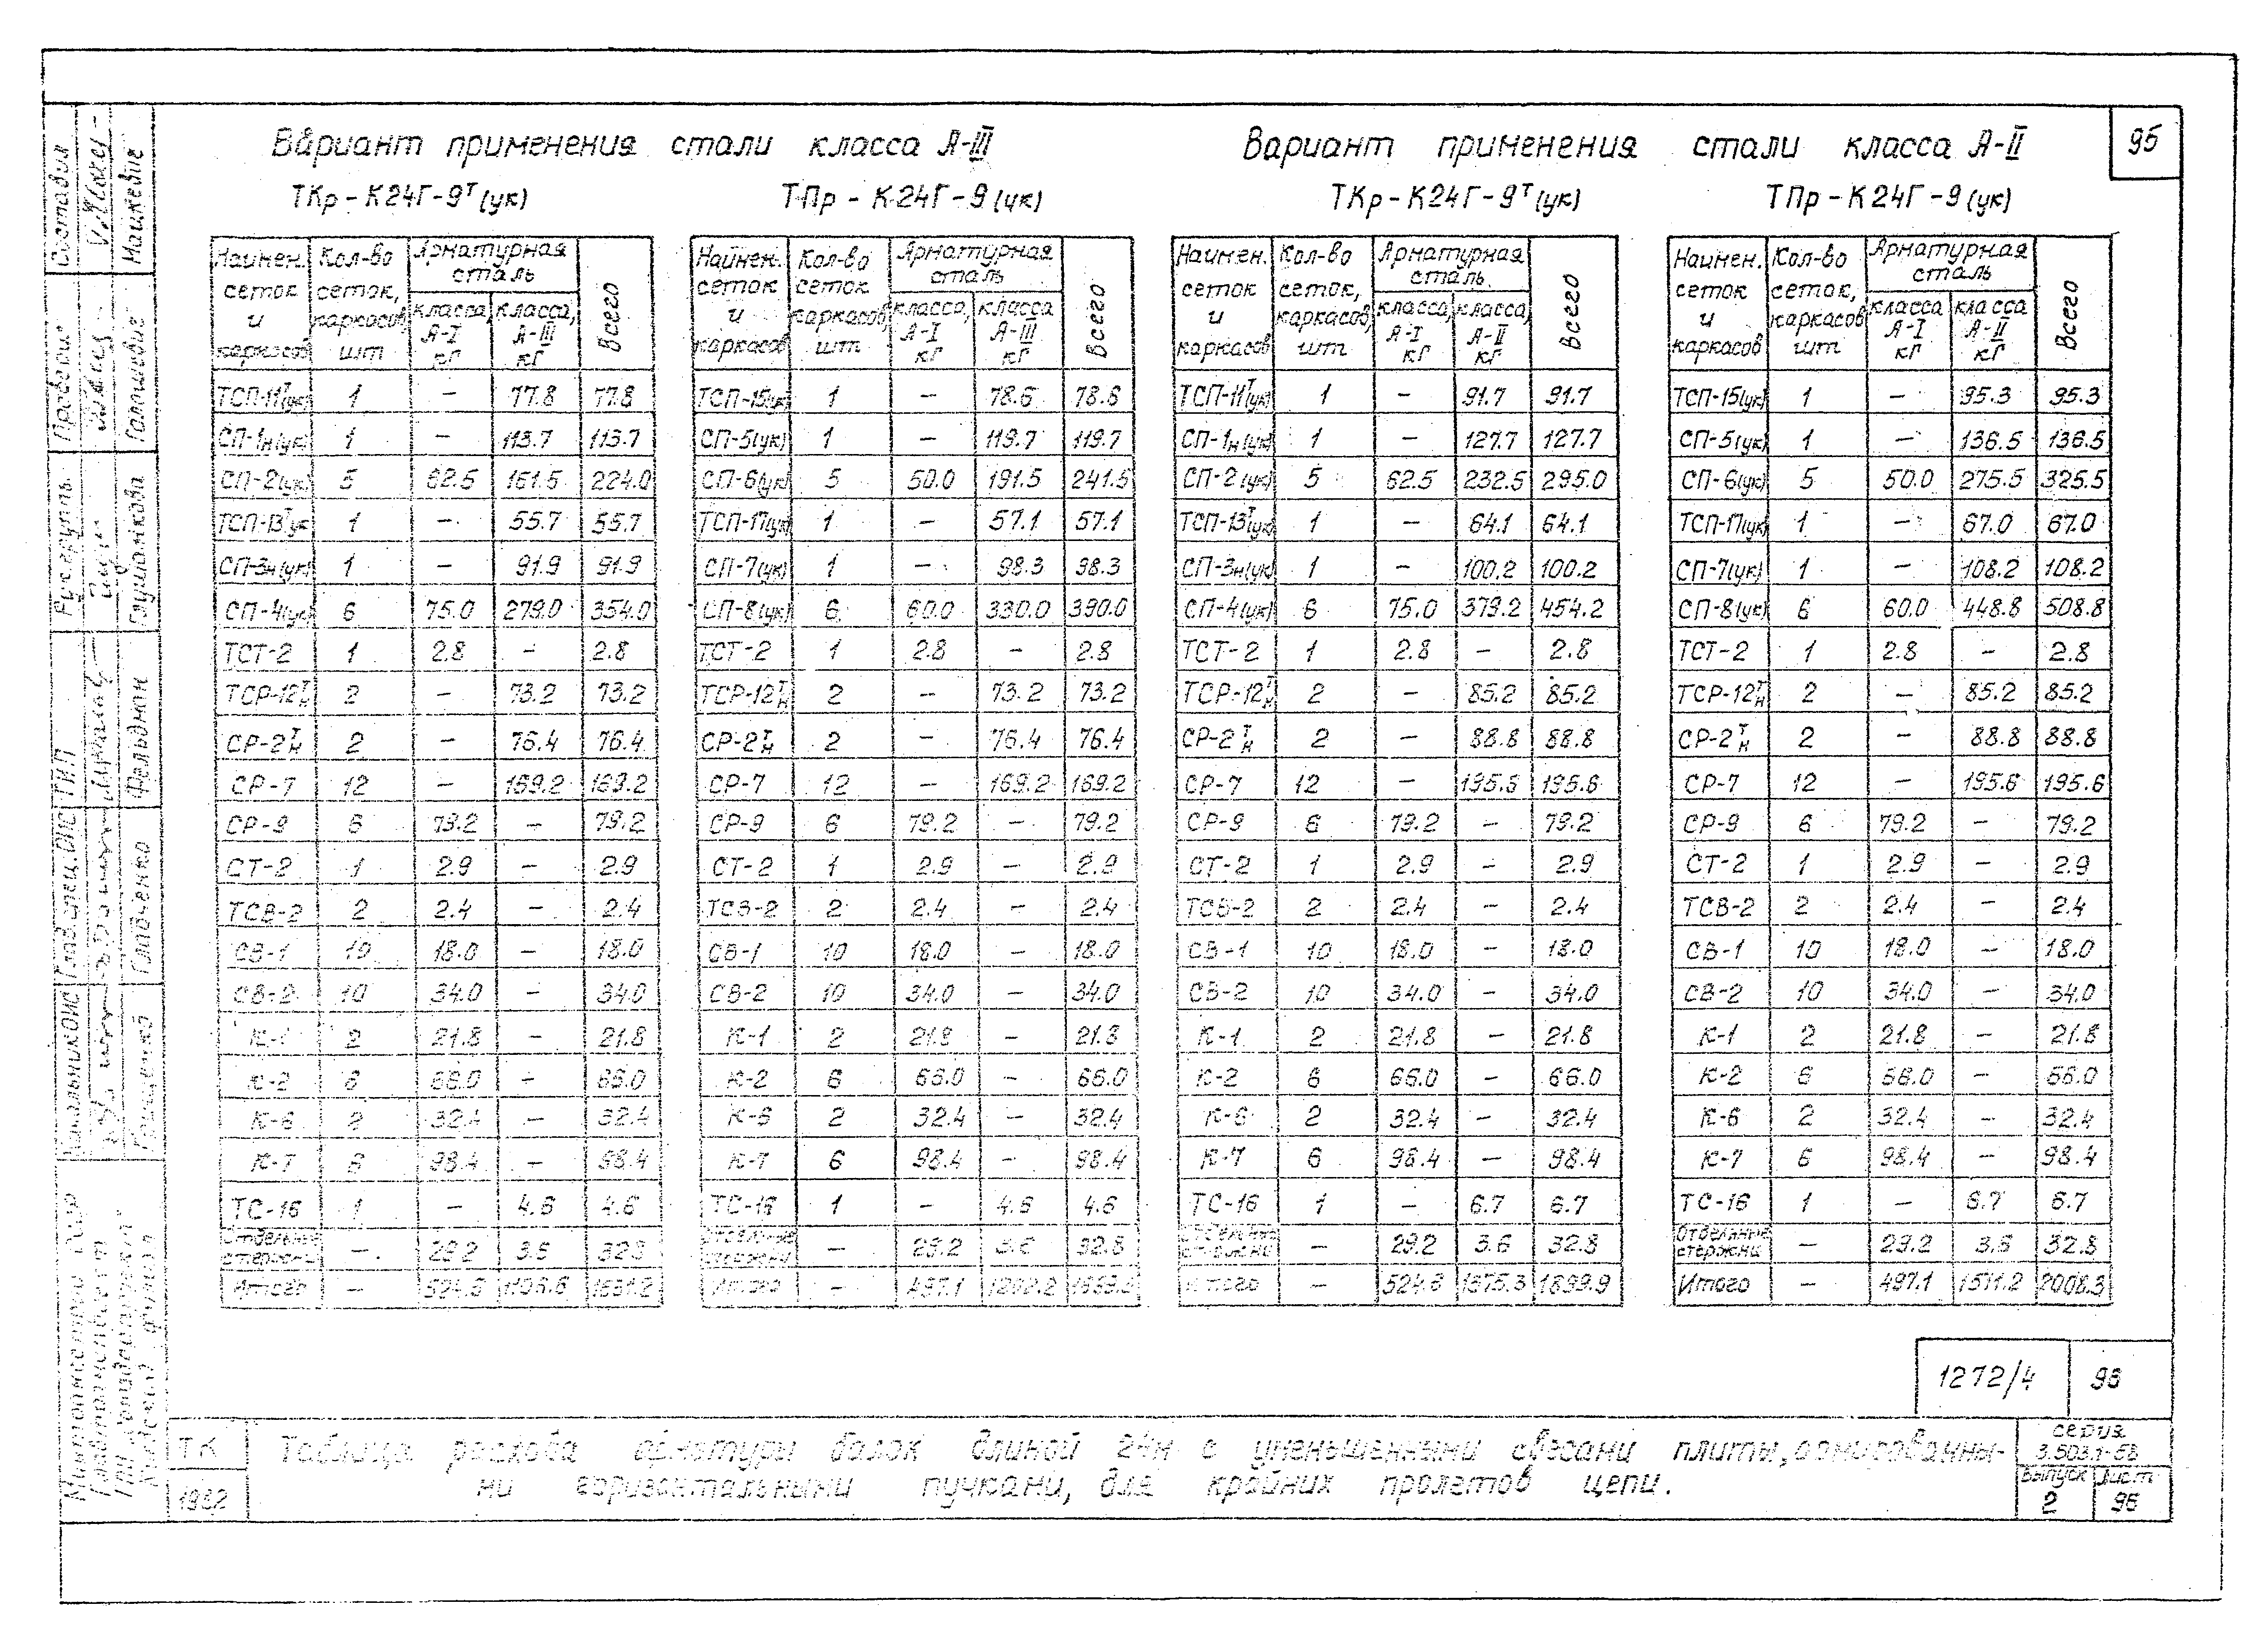 Вариант применения стали класса А-III
Вариант применения стали класса А-II
95
ТКр-К24Г-9Т(ук)
ТПр-К24Г-9(ук)
ТКр-К24Г-9Т(ук)
ТПр-К24Г-9(ук)
Наимен. сеток и каркасов Кол-во сеток, каркасов, шт Арматурная сталь класса, А-I кГ класса, А-III кГ Всего
ТСП-11Т(ук) 1 – 77.8 77.8
СП-1н(ук) 1 – 113.7 113.7
СП-2(ук) 5 62.5 161.5 224.0
ТСП-13Тук 1 – 55.7 55.7
СП-3н(ук) 1 – 91.9 91.9
СП-4(ук) 6 75.0 279.0 354.0
ТСТ-2 1 2.8 – 2.8
ТСР-12Тн 2 – 73.2 73.2
СР-2Тн 2 – 76.4 76.4
СР-7 12 – 169.2 169.2
СР-9 6 79.2 – 79.2
СТ-2 1 2.9 – 2.9
ТСВ-2 2 2.4 – 2.4
СВ-1 10 18.0 – 18.0
СВ-2 10 34.0 – 34.0
К-1 2 21.8 – 21.8
К-2 6 66.0 – 66.0
К-6 2 32.4 – 32.4
К-7 6 98.4 – 98.4
ТС-16 1 – 4.6 4.6
Отдельные стержни – 29.2 3.6 32.8
Итого – 524.6 1106.6 1631.2
Наимен. сеток и каркасов Кол-во сеток каркасов, шт Арматурная сталь класса, А-I кГ класса А-III кГ Всего
ТСП-15(ук) 1 – 78.6 78.6
СП-5(ук) 1 – 119.7 119.7
СП-6(ук) 5 50.0 191.5 241.5
ТСП-17(ук) 1 – 57.1 57.1
СП-7(ук) 1 – 98.3 98.3
СП-8(ук) 6 60.0 330.0 390.0
ТСТ-2 1 2.8 – 2.8
ТСР-12Тн 2 – 73.2 73.2
СР-2Тн 2 – 76.4 76.4
СР-7 12 – 169.2 169.2
СР-9 6 79.2 – 79.2
СТ-2 1 2.9 – 2.9
ТСВ-2 2 2.4 – 2.4
СВ-1 10 18.0 – 18.0
СВ-2 10 34.0 – 34.0
К-1 2 21.8 – 21.8
К-2 6 66.0 – 66.0
К-6 2 32.4 – 32.4
К-7 6 98.4 – 98.4
ТС-16 1 – 4.6 4.6
Отдельные стержни – 29.2 3.6 32.8
Итого – 497.1 1202.2
Наимен. сеток и каркасов Кол-во сеток, каркасов, шт Арматурная сталь класса, А-I кГ класса, А-II кГ Всего
ТСП-11Т(ук) 1 – 91.7 91.7
СП-1н(ук) 1 – 127.7 127.7
СП-2(ук) 5 62.5 232.5 295.0
ТСП-13Т(ук) 1 – 64.1 64.1
СП-3н(ук) 1 – 100.2 100.2
СП-4(ук) 6 75.0 379.2 454.2
ТСТ-2 1 2.8 – 2.8
ТСР-12Тн 2 – 85.2 85.2
СР-2Тн 2 – 88.8 88.8
СР-7 12 – 195.6 195.6
СР-9 6 79.2 – 79.2
СТ-2 1 2.9 – 2.9
ТСВ-2 2 2.4 – 2.4
СВ-1 10 18.0 – 18.0
СВ-2 10 34.0 – 34.0
К-1 2 21.8 – 21.8
К-2 6 66.0 – 66.0
К-6 2 32.4 – 32.4
К-7 6 98.4 – 98.4
ТС-16 1 – 6.7 6.7
Отдельные стержни – 29.2 3.6 32.8
Итого – 524.6 1375.3 1899.9
Наимен. сеток и каркасов Кол-во сеток, каркасов шт Арматурная сталь класса А-I кГ класса А-II кГ Всего
ТСП-15(ук) 1 – 95.3 95.3
СП-5(ук) 1 – 136.5 136.5
СП-6(ук) 5 50.0 275.5 325.5
ТСП-17(ук) 1 – 67.0 67.0
СП-7(ук) 1 – 108.2 108.2
СП-8(ук) 6 60.0 448.8 508.8
ТСТ-2 1 2.8 – 2.8
ТСР-12Тн 2 – 85.2 85.2
СР-2Тн 2 – 88.8 88.8
СР-7 12 – 195.6 195.6
СР-9 6 79.2 – 79.2
СТ-2 1 2.9 – 2.9
ТСВ-2 2 2.4 – 2.4
СВ-1 10 18.0 – 18.0
СВ-2 10 34.0 – 34.0
К-1 2 21.8 – 21.8
К-2 6 66.0 – 66.0
К-6 2 32.4 – 32.4
К-7 6 98.4 – 98.4
ТС-16 1 – 6.7 6.7
Отдельные стержни – 29.2 3.6 32.8
Итого – 497.1 1511.2 2008.3
1272/4 96
ТК
1982
Таблица расхода арматуры балок длиной 24м с уменьшенными свесами плиты, армированны-
ми горизонтальными пучками, для крайних пролетов цепи.
серия
3.503.1-58
выпуск 2
лист 95
Составил Мацкевіч
Проверил Галашевич
Рук. группы Глушанкова
ГИП Фельдман
Глав.спец.ОИС Гладченко
Начальник ОИС